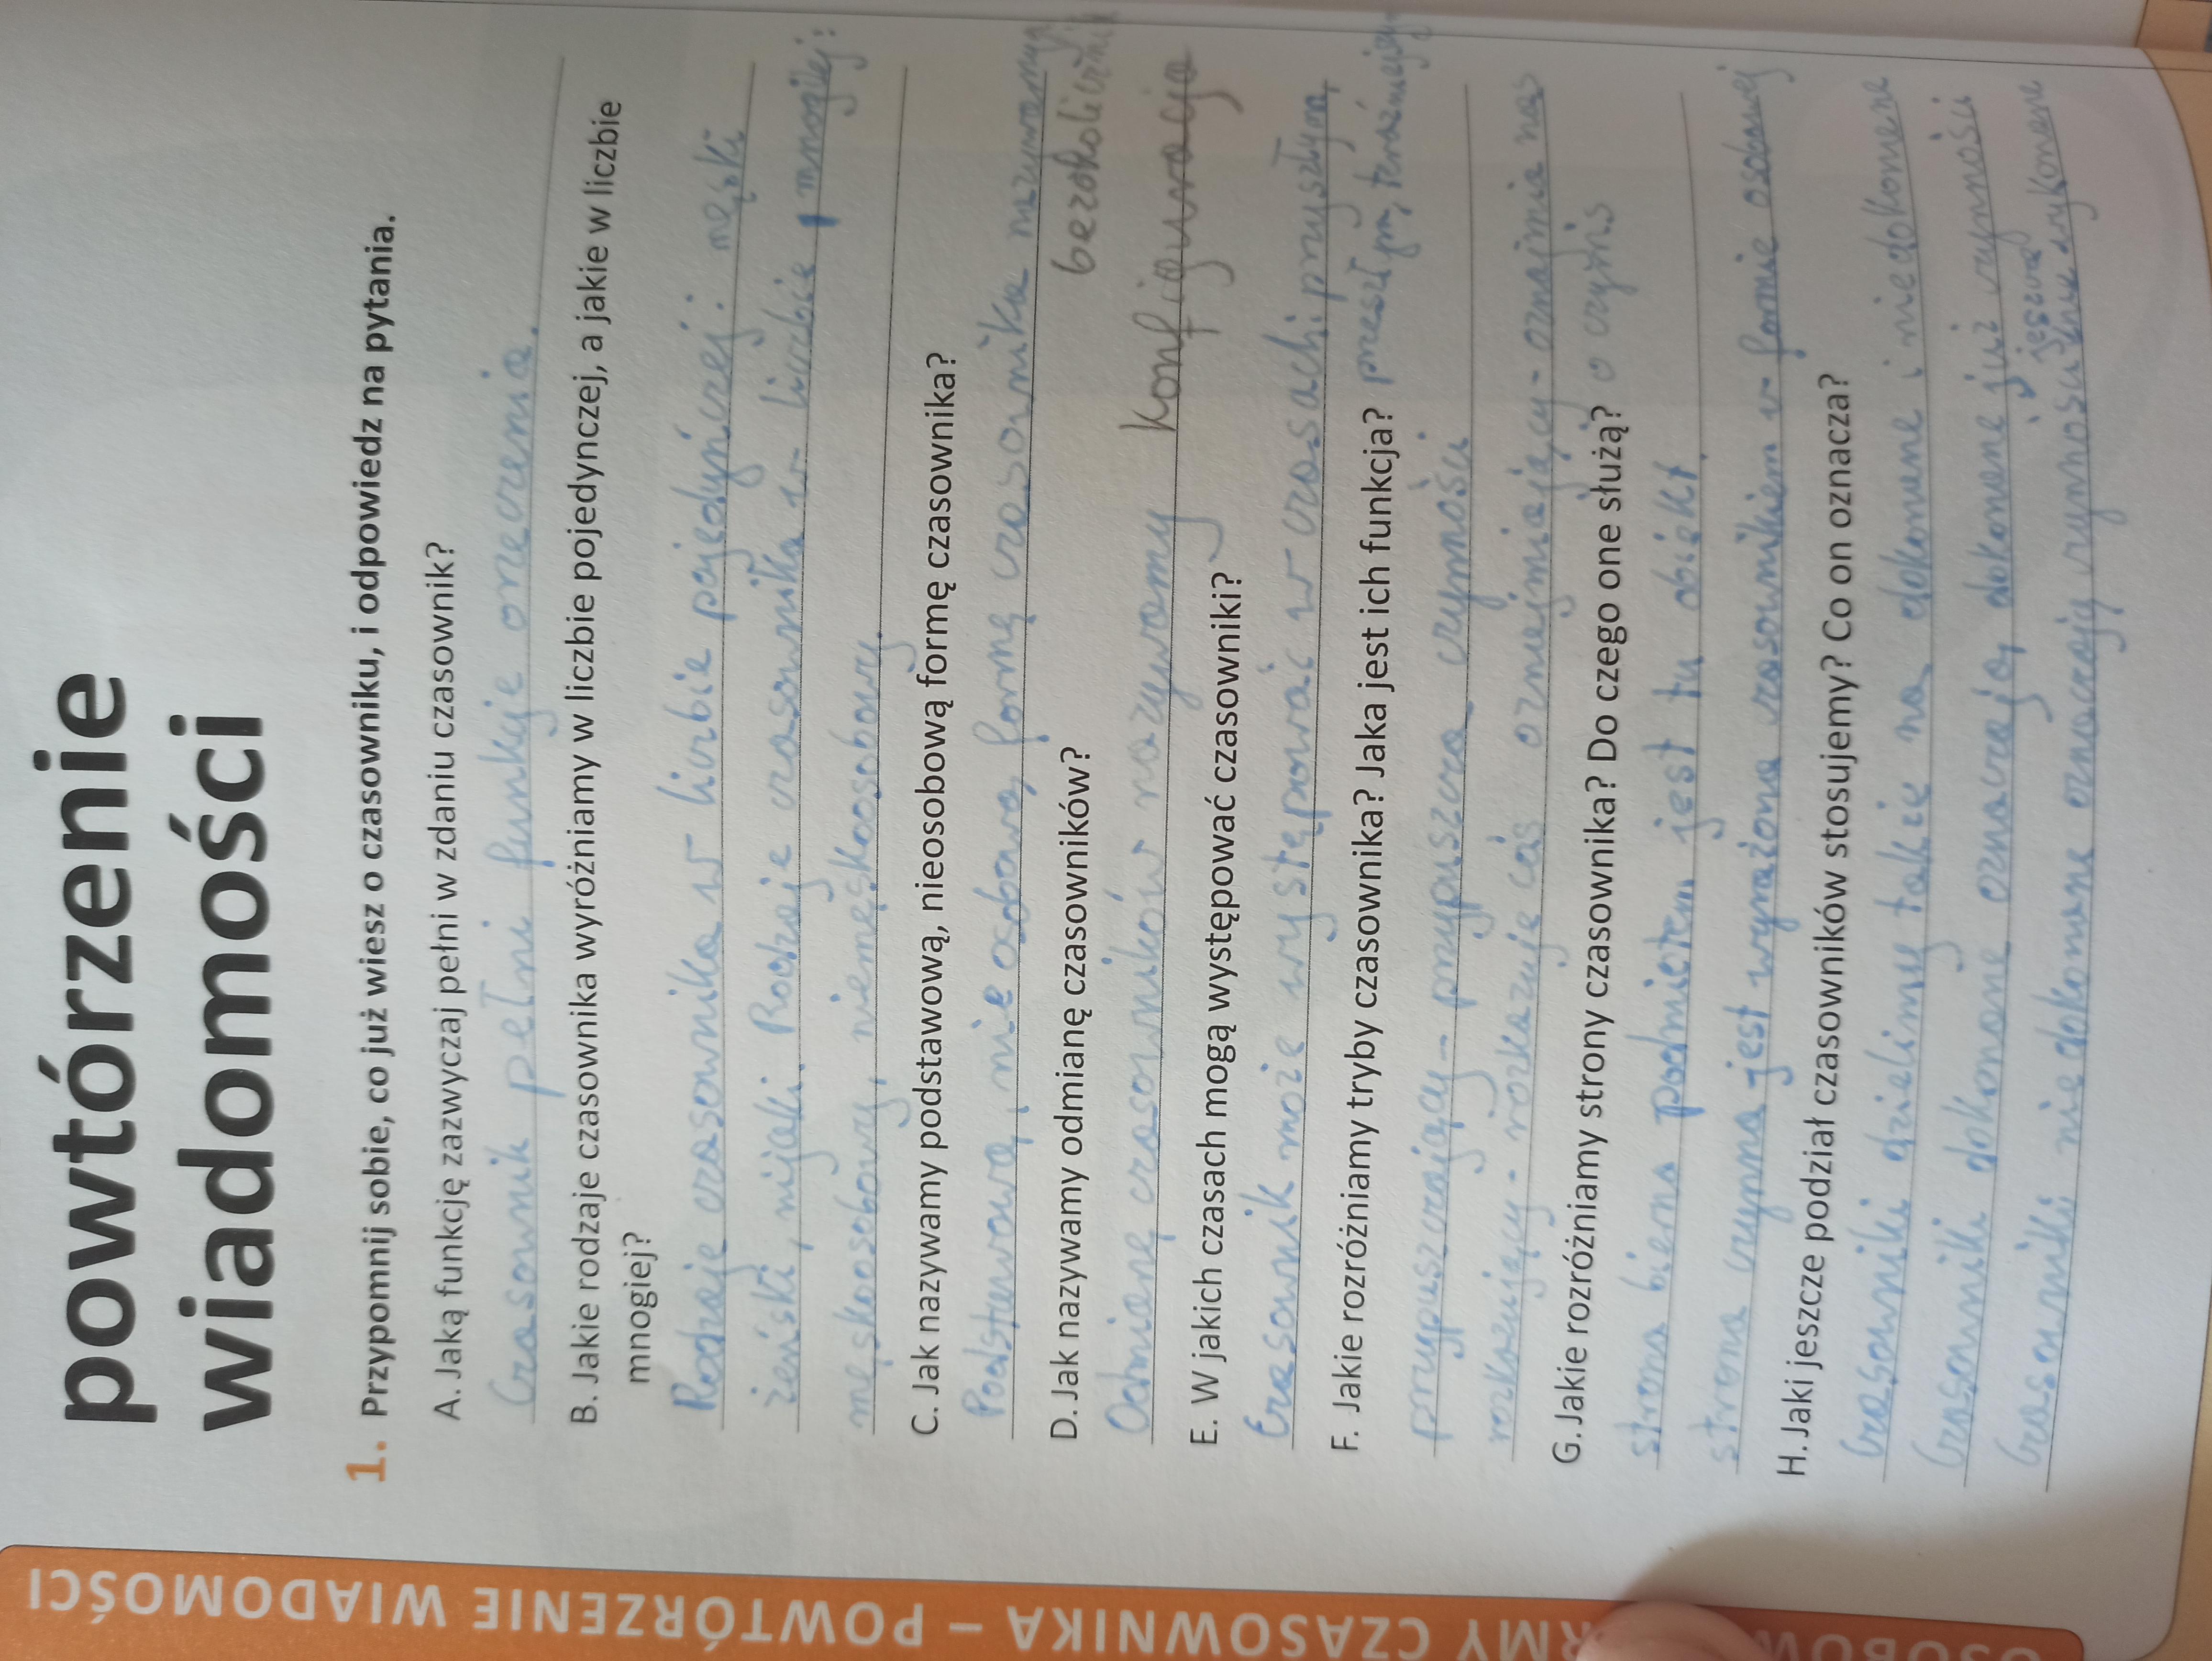 powtórzenie
wiadomości
1. Przypomnij sobie, co już wiesz o czasowniku, i odpowiedz na pytania.
A. Jaką funkcję zazwyczaj pełni w zdaniu czasownik?
Czasownik pełni funkcje orzeczenia.
B. Jakie rodzaje czasownika wyróżniamy w liczbie pojedynczej, a jakie w liczbie
mnogiej?
Rodzaje czasownika w liczbie pojedyńczej: męski
żeński, nijaki. Rodzaje czasownika w liczbie mnogiej:
męskoosobowy, niemęskoosobowy.
C. Jak nazywamy podstawową, nieosobową formę czasownika?
Podstawową, nie osobową formę czasownika nazywamy
bezokolicznik
D. Jak nazywamy odmianę czasowników?
Odmianę czasowników nazywamy konfiguracją
E. W jakich czasach mogą występować czasowniki?
Czasownik może występować w czasach: przyszłym,
przeszłym, teraźniejszym
F. Jakie rozróżniamy tryby czasownika? Jaka jest ich funkcja?
przypuszczający - przypuszcza czynności
rozkazujący - rozkazuje coś oznajmiający - oznajmia nas
o czymś
G. Jakie rozróżniamy strony czasownika? Do czego one służą?
strona bierna podmiotem jest tu obiekt.
strona czynna jest wyrażona czasownikiem w formie osobowej
H. Jaki jeszcze podział czasowników stosujemy? Co on oznacza?
Czasowniki dzielimy także na dokonane i niedokonane
Czasowniki dokonane oznaczają dokonane już czynności
Czasowniki nie dokonane oznaczają czynności jeszcze nie wykonane
POWTÓRZENIE WIADOMOŚCI
CZASOWNIKA –